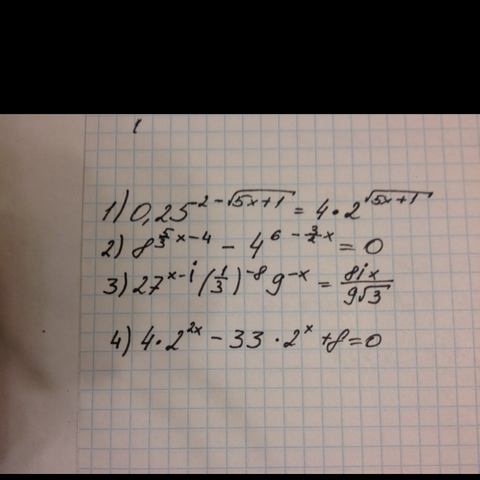 1) 0,25^{2-√(5x+1)} = 4·2^{√(5x+1)}
2) 8^{5/3 x-4} - 4^{6-3/2 x} = 0
3) 27^{x-1} (1/3)^{-8} 9^{-x} = 81x/9√3
4) 4·2^{2x} - 33·2^x + 8 = 0